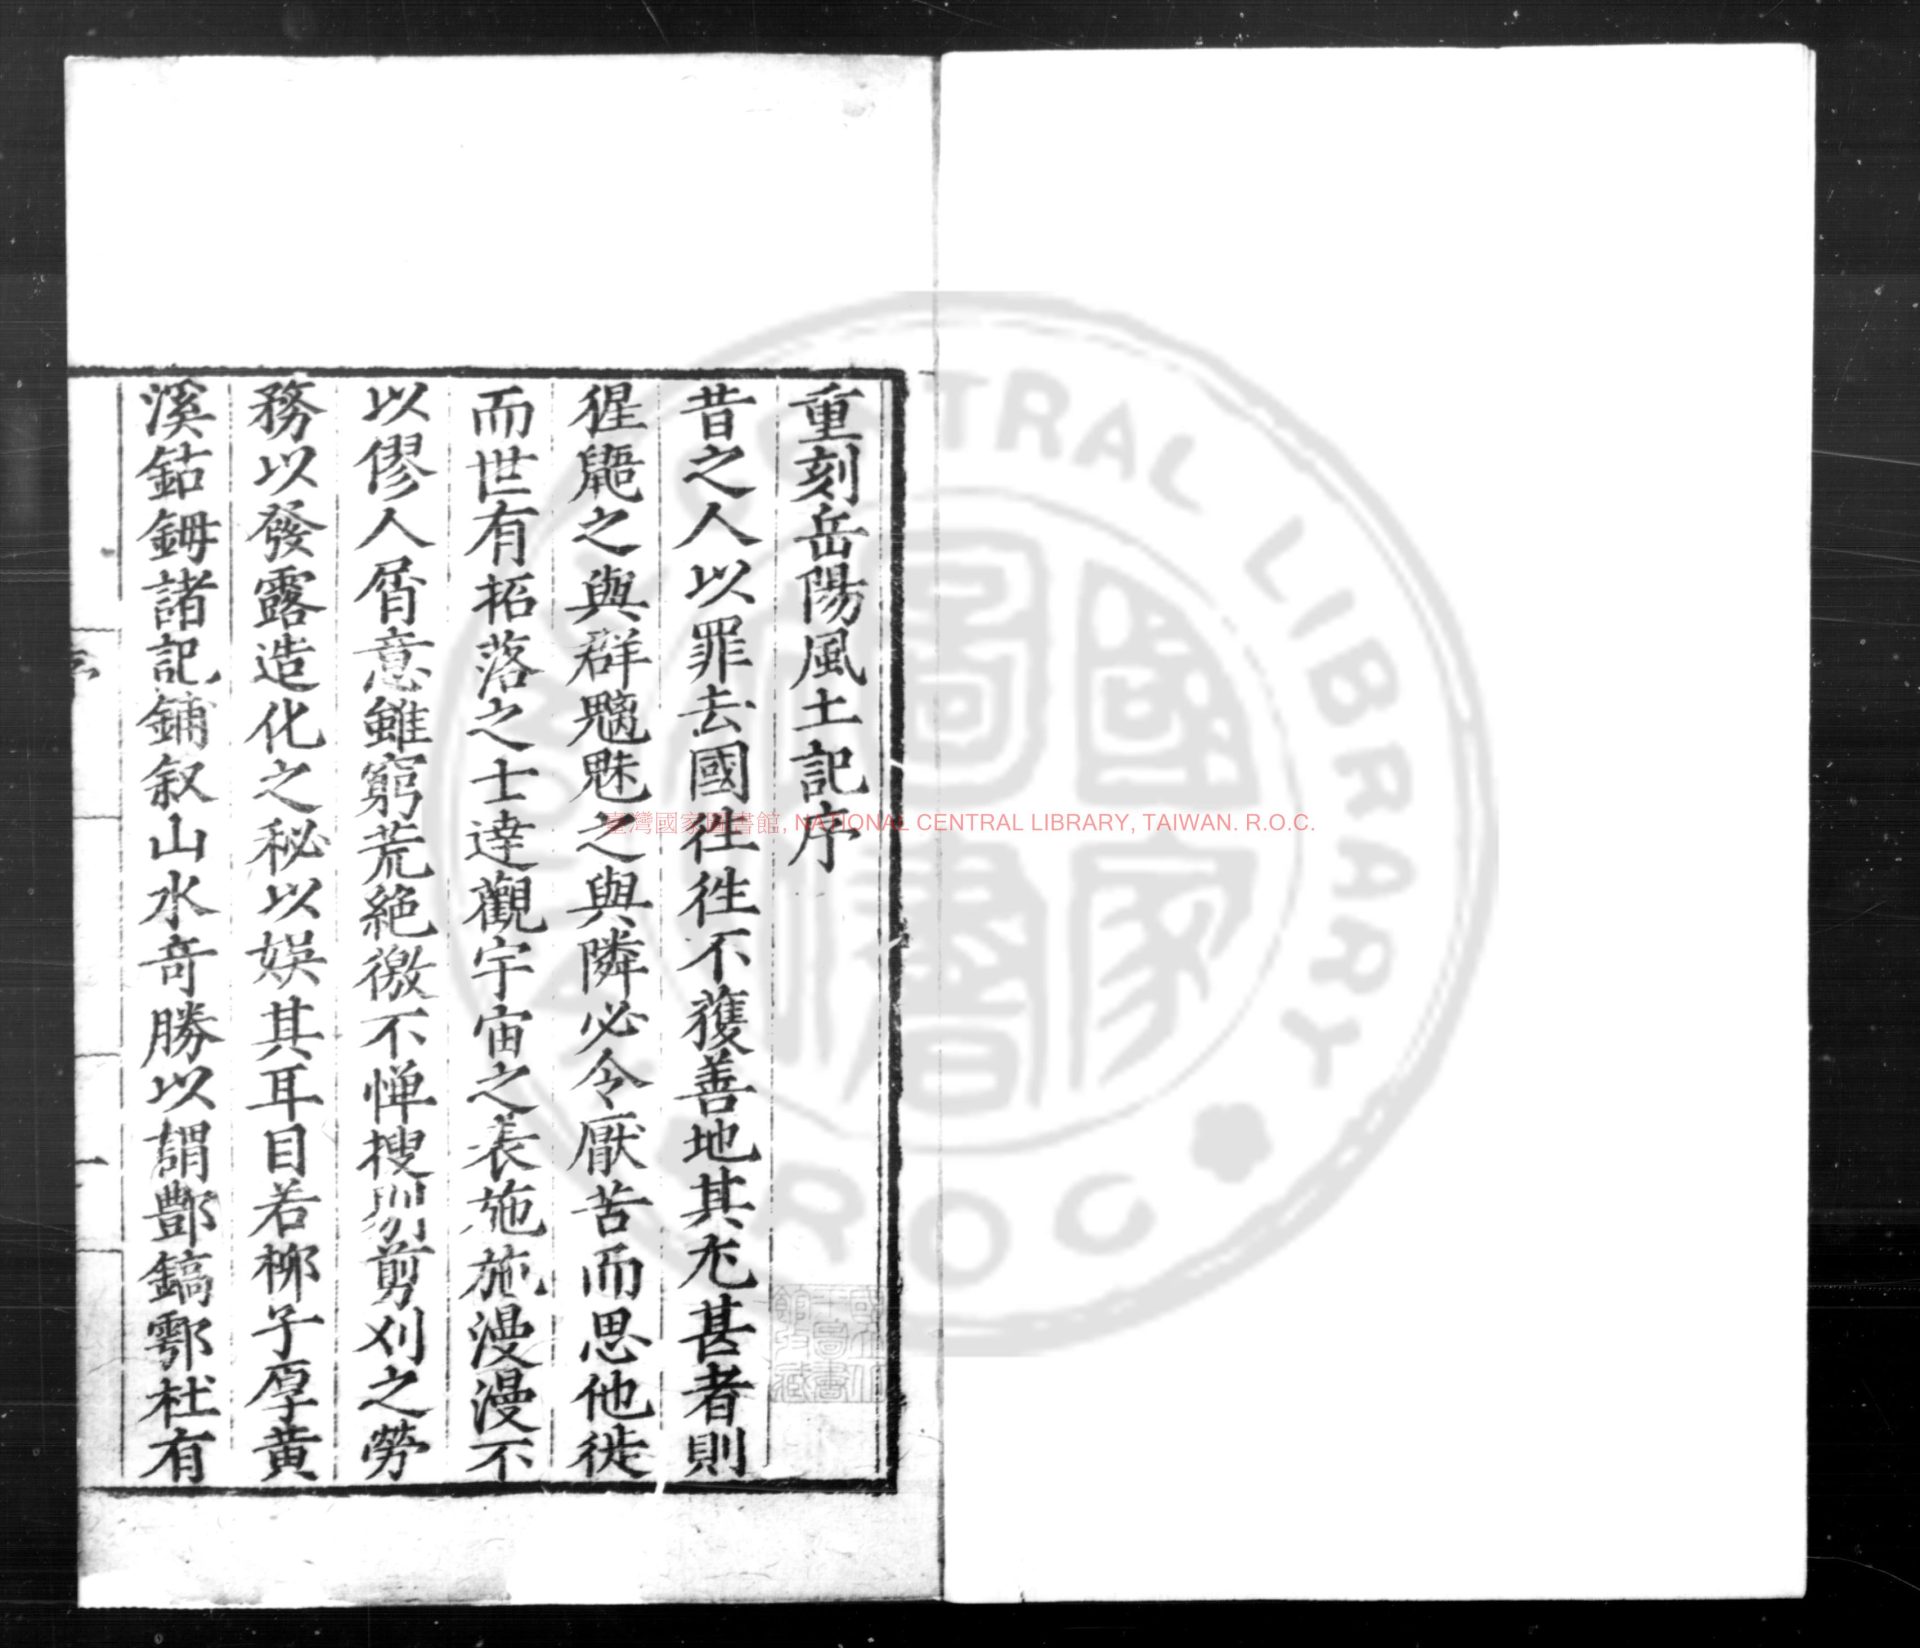 重刻岳陽風土記序
昔之人以罪去國往往不獲善地其尤甚者則
猩鼯之與群魑魅之與隣必令厭苦而思他徙
而世有拓落之士達觀宇宙之表施施漫漫不
以僇人屑意雖窮荒絶徼不憚搜剔剪刈之勞
務以發露造化之秘以娯其耳目若柳子厚黄
溪鈷鉧諸記鋪叙山水奇勝以謂酆鎬鄠杜有
臺灣國家圖書館, NATIONAL CENTRAL LIBRARY, TAIWAN. R.O.C.
國家圖書館
CENTRAL LIBRARY
R.O.C
一